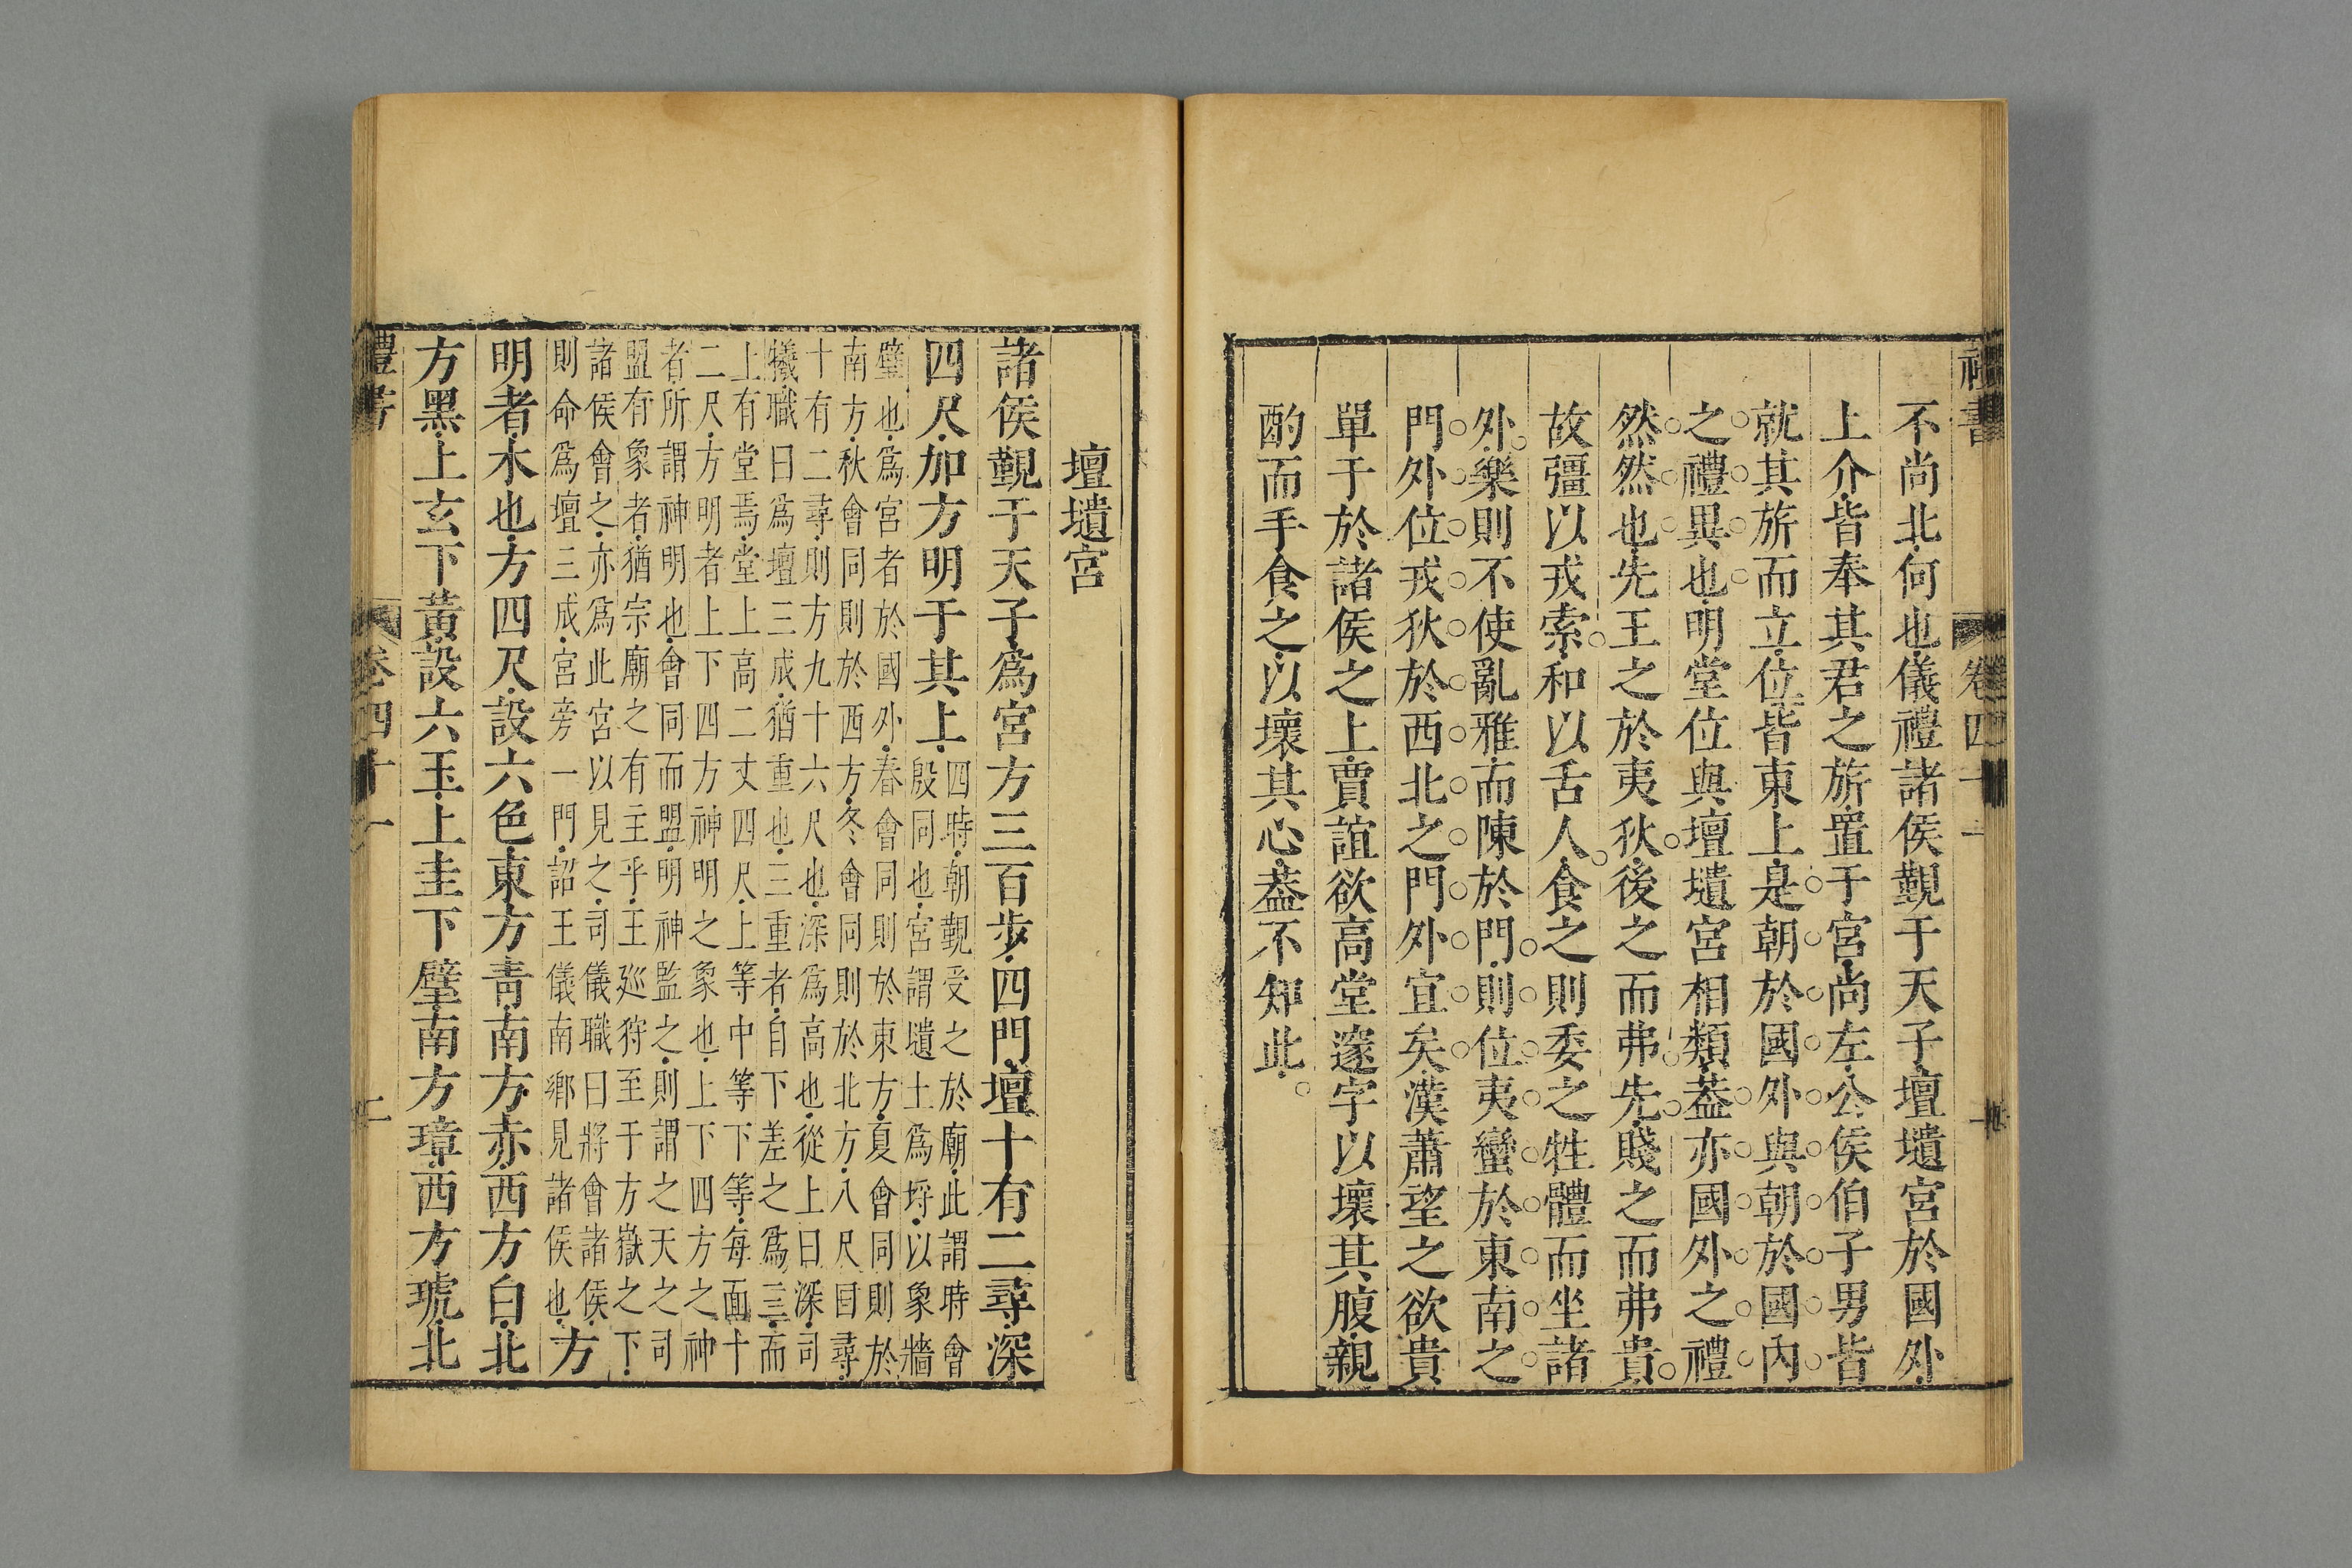 不尚北何也儀禮諸侯覲于天子壇壝宮於國外
上介皆奉其君之旂置于宮尚左公侯伯子男皆
就其旂而立位皆東上是朝於國外與朝於國內
之禮異也明堂位與壇壝宮相類蓋亦國外之禮
然然也先王之於夷狄後之而弗先賤之而弗貴
故彊以戎索和以舌人食之則委之牲體而坐諸
外樂則不使亂雅而陳於門則位夷蠻於東南之
門外位戎狄於西北之門外宜矣漢蕭望之欲貴
單于於諸侯之上賈誼欲高堂邃宇以壞其腹親
酌而手食之以壞其心葢不知此
壇壝宮
諸侯覲于天子爲宮方三百步四門壇十有二尋深
四尺加方明于其上四時朝覲受之於廟此謂時會
殷同也宮謂壝土爲埓以象牆
璧也爲宮者於國外春會同則於東方夏會同則於
南方秋會同則於西方冬會同則於北方八尺曰尋
十有二尋則方九十六尺也深爲高也從上曰深司
犧職曰爲壇三成猶重也三重者自下差之爲三而
上有堂焉堂上高二丈四尺上等中等下等每面十
二尺方明者上下四方神明之象也上下四方之神
者所謂神明也會同而盟明神監之則謂之天之司
盟有象者猶宗廟之有主乎王廵狩至于方嶽之下
諸侯會之亦爲此宮以見之司儀職曰將會諸侯
則命爲壇三成宮旁一門詔王儀南鄉見諸侯也方
明者木也方四尺設六色東方靑南方赤西方白北
方黑上玄下黃設六玉上圭下璧南方璋西方琥北
卷四十一
二